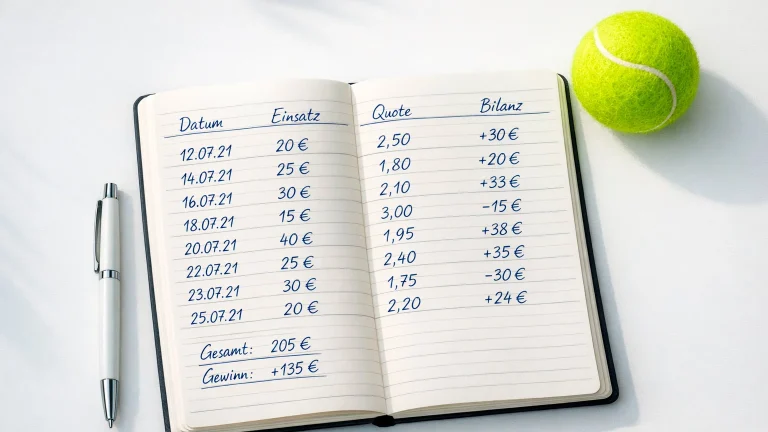 Datum Einsatz Quote Bilanz
12.07.21 20 € 2,50 +30 €
14.07.21 25 € 1,80 +20 €
16.07.21 30 € 2,10 +33 €
18.07.21 15 € 3,00 -15 €
20.07.21 40 € 1,95 +38 €
22.07.21 25 € 2,40 +35 €
23.07.21 30 € 1,75 -30 €
25.07.21 20 € 2,20 +24 €
Gesamt: 205 €
Gewinn: +135 €